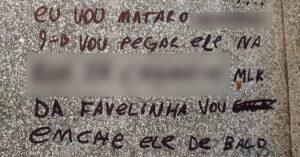 EU VOU MATARO
9-D VOU PEGAR ELE NA
MLK
DA FAVELINHA VOU
EMCHE ELE DE BALO